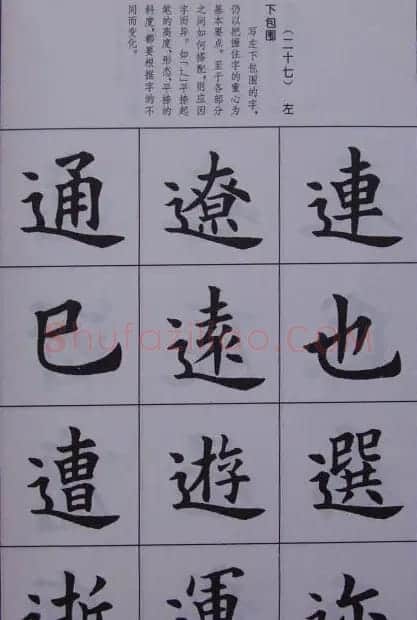 （二十七） 左
下包围
写左下包围的字，
仍以把握住字的重心为
基本要点。至于各部分
之间如何搭配，则应因
字而异。如“辶”平捺起
笔的高度、形态，平捺的
斜度，都要根据字的不
同而变化。
連也選
遼遠遊運
通巳遭逝